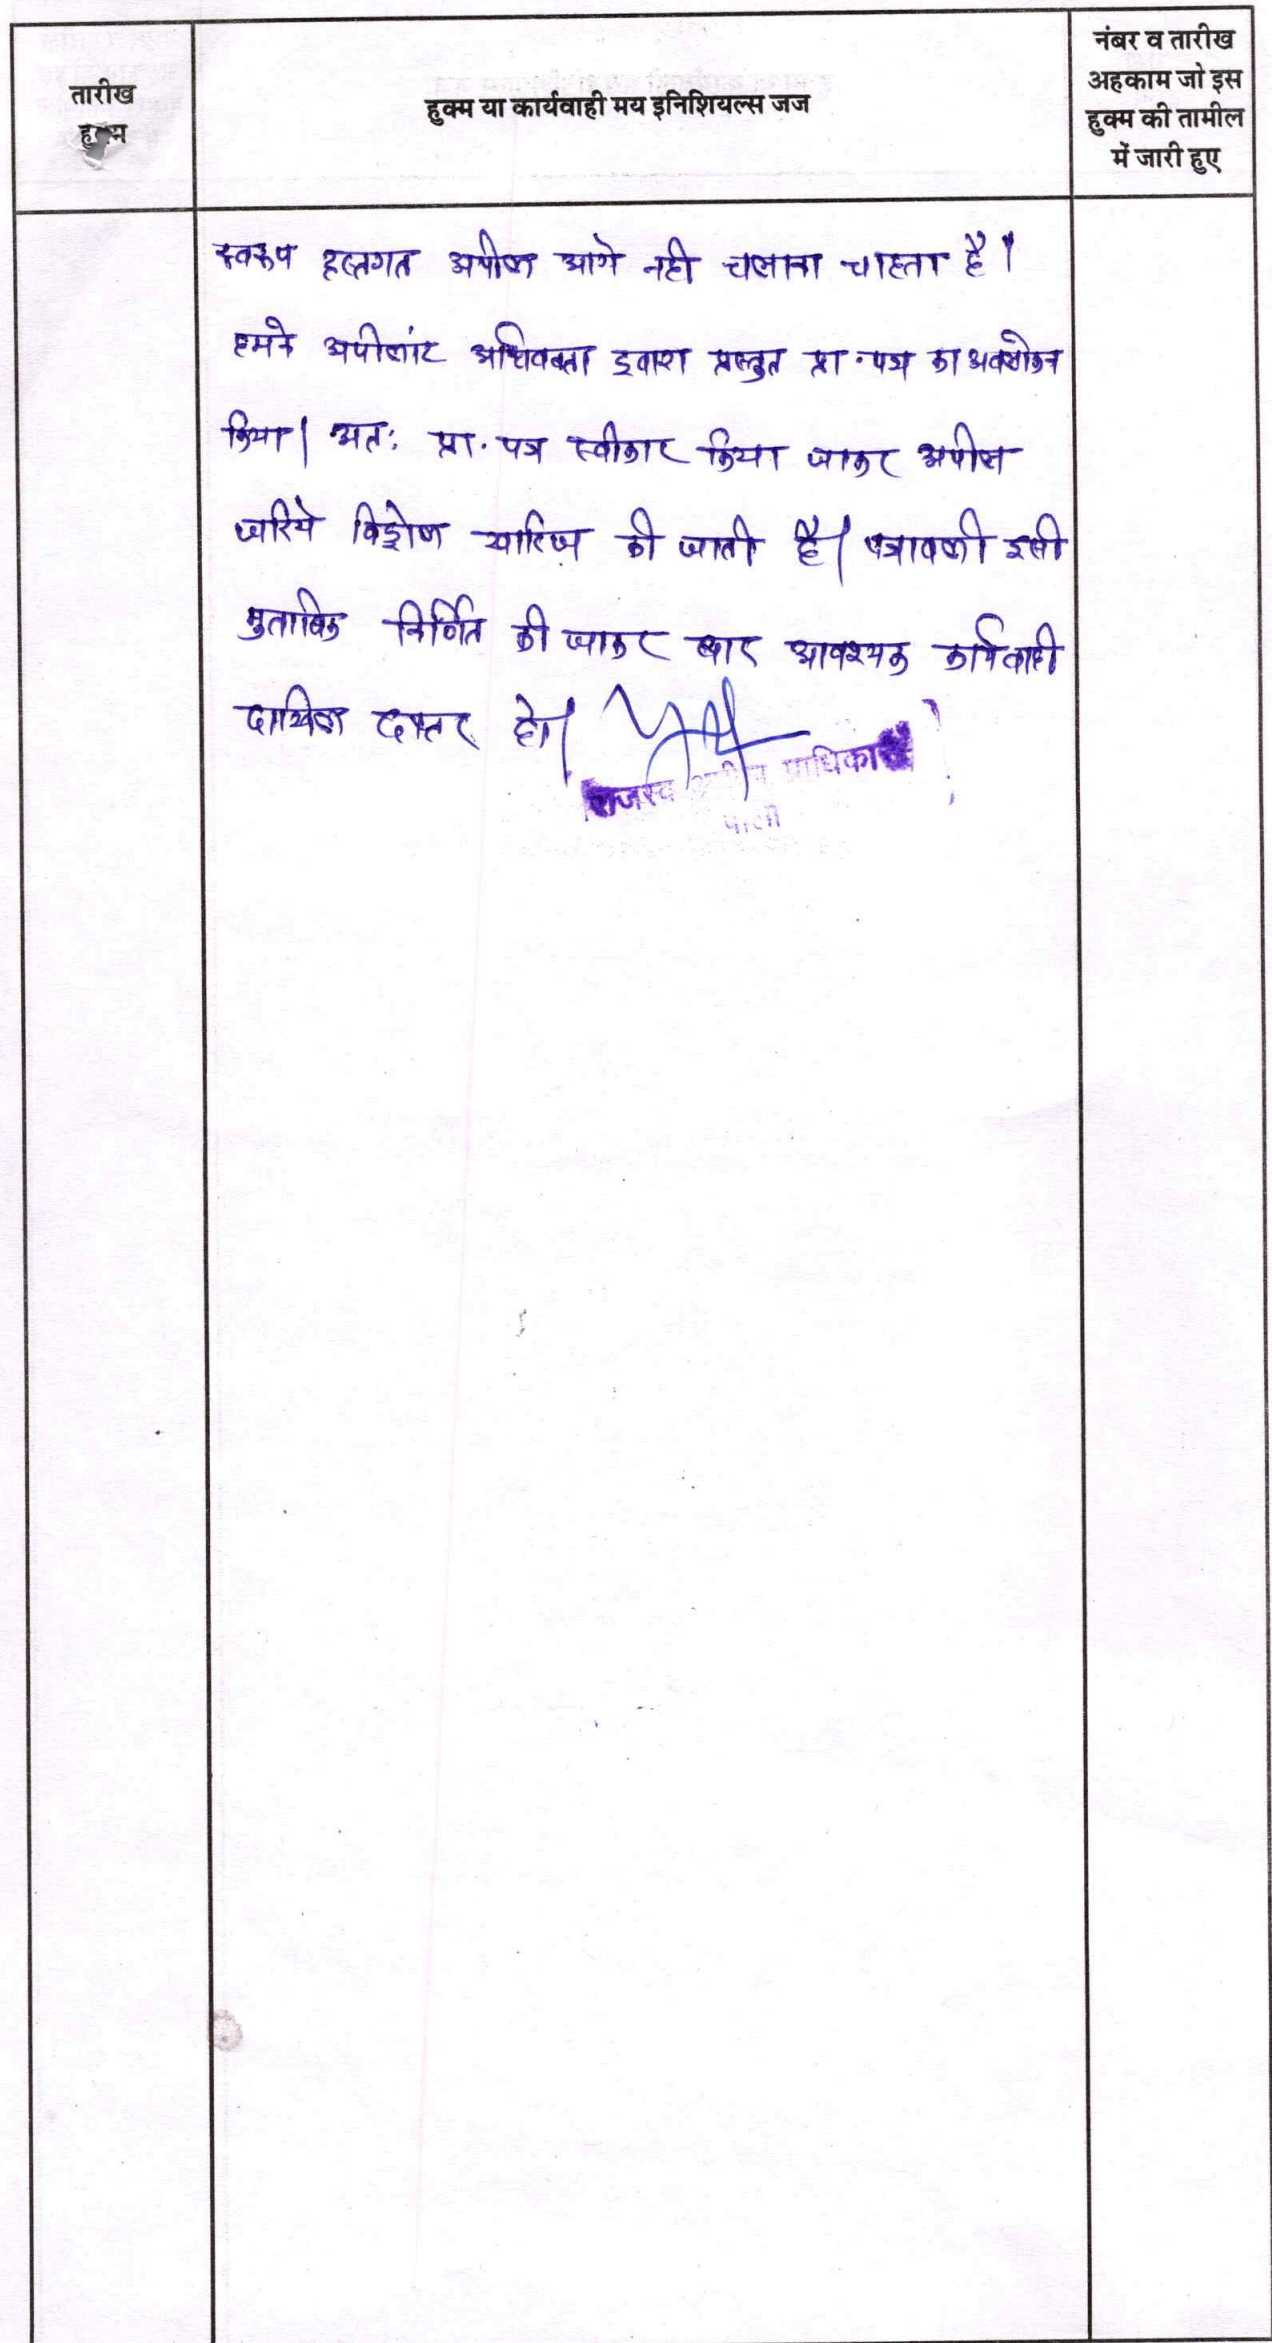 तारीख
हुक्म
हुक्म या कार्यवाही मय इनिशियल्स जज
नंबर व तारीख
अहकाम जो इस
हुक्म की तामील
में जारी हुए
स्वरूप हस्तगत अपील आगे नही चलाना चाहता है।
हमने अपीलांट अधिवक्ता द्वारा प्रस्तुत प्रा.पत्र का अवलोकन
किया। अतः प्रा.पत्र स्वीकार किया जाकर अपील
जरिये विड्रोल खारिज की जाती है। पत्रावली इसी
मुताबिक निर्णित की जाकर बाद आवश्यक कार्यवाही
दाखिल दफ्तर हो।
राजस्व अपील प्राधिकारी
पाली